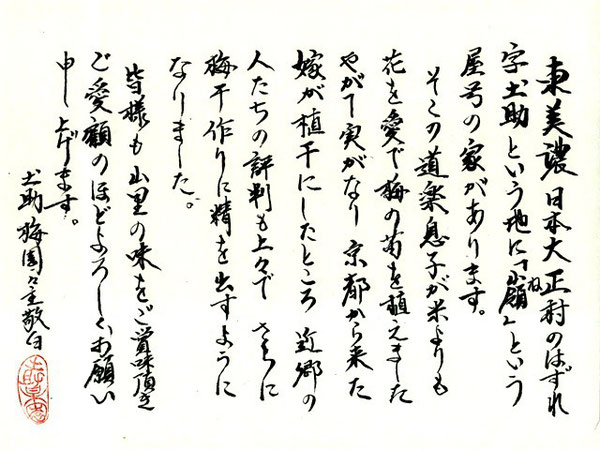 東美濃日本大正村のはずれ
字土助という地に「小嶺」という
屋号の家があります。
そこの道楽息子が米よりも
花を愛で梅の苗を植えました
やがて実がなり京都から来た
嫁が梅干にしたところ近郷の
人たちの評判も上々でさらに
梅干作りに精を出すように
なりました。
皆様も山里の味をご賞味頂き
ご愛顧のほどよろしくお願い
申し上げます。
土助梅園々主敬白